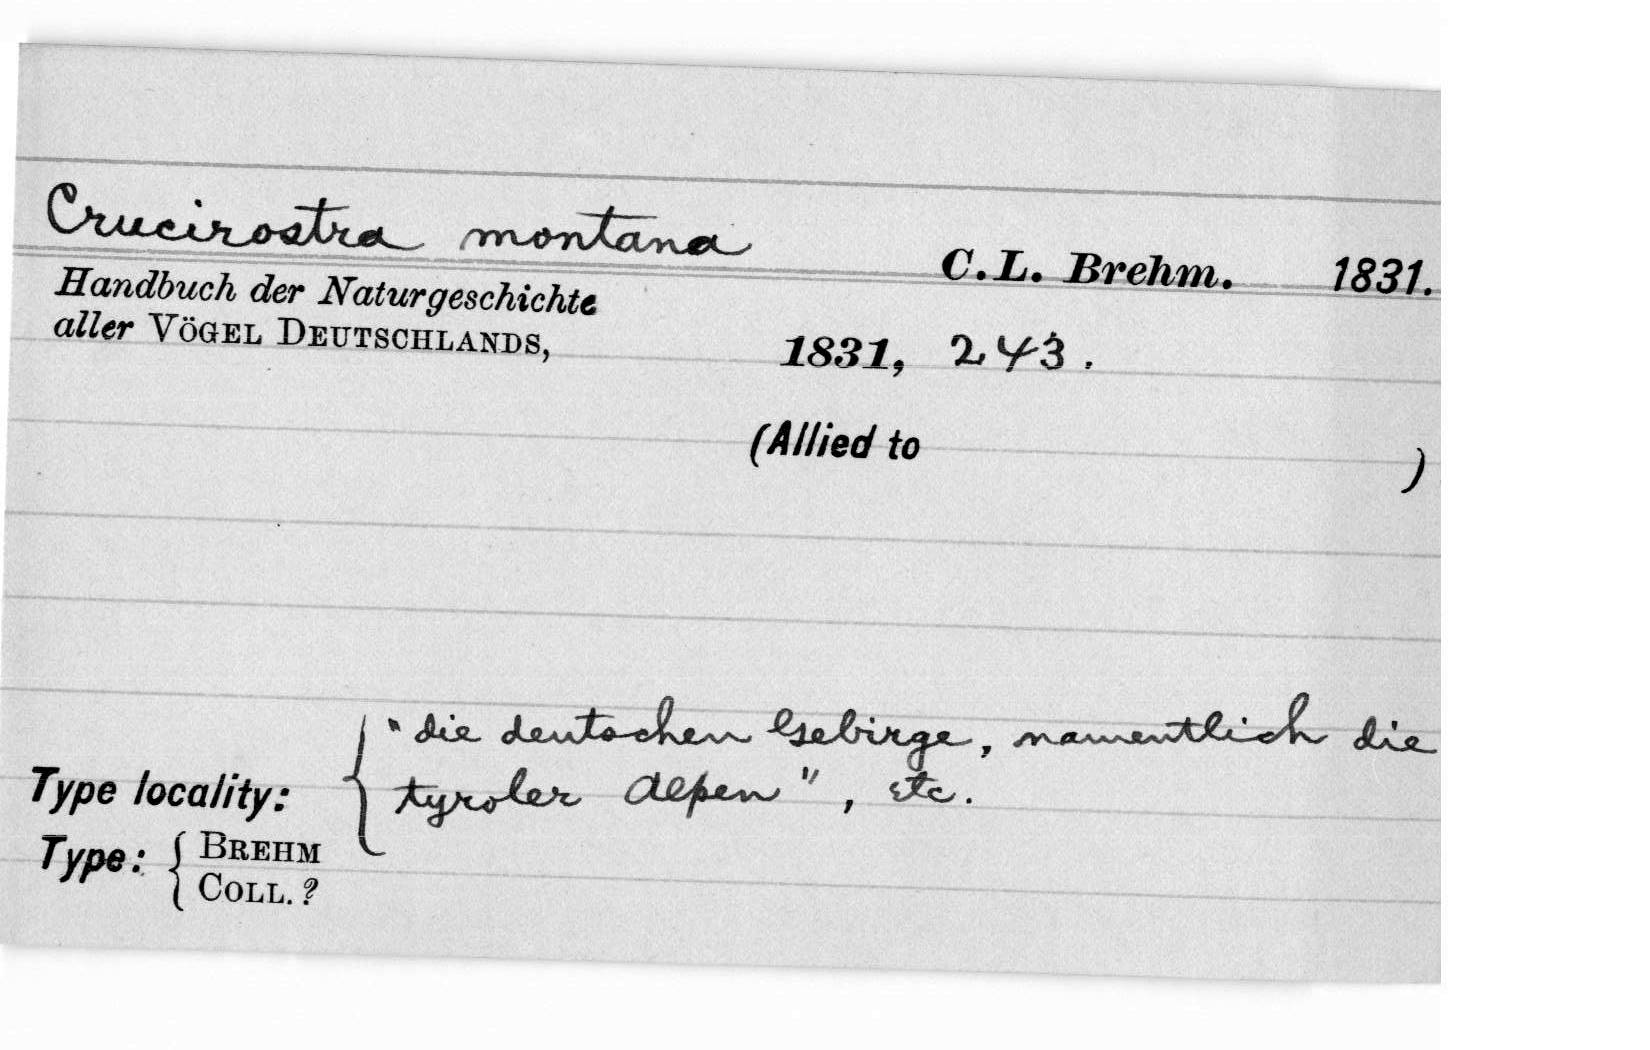 Crucirostra montana
C. L. Brehm. 1831.
Handbuch der Naturgeschichte
aller VÖGEL DEUTSCHLANDS,
1831, 243.
(Allied to )
"die deutschen Gebirge, namentlich die
Type locality: tyroler Alpen", etc.
Type: BREHM
COLL. ?